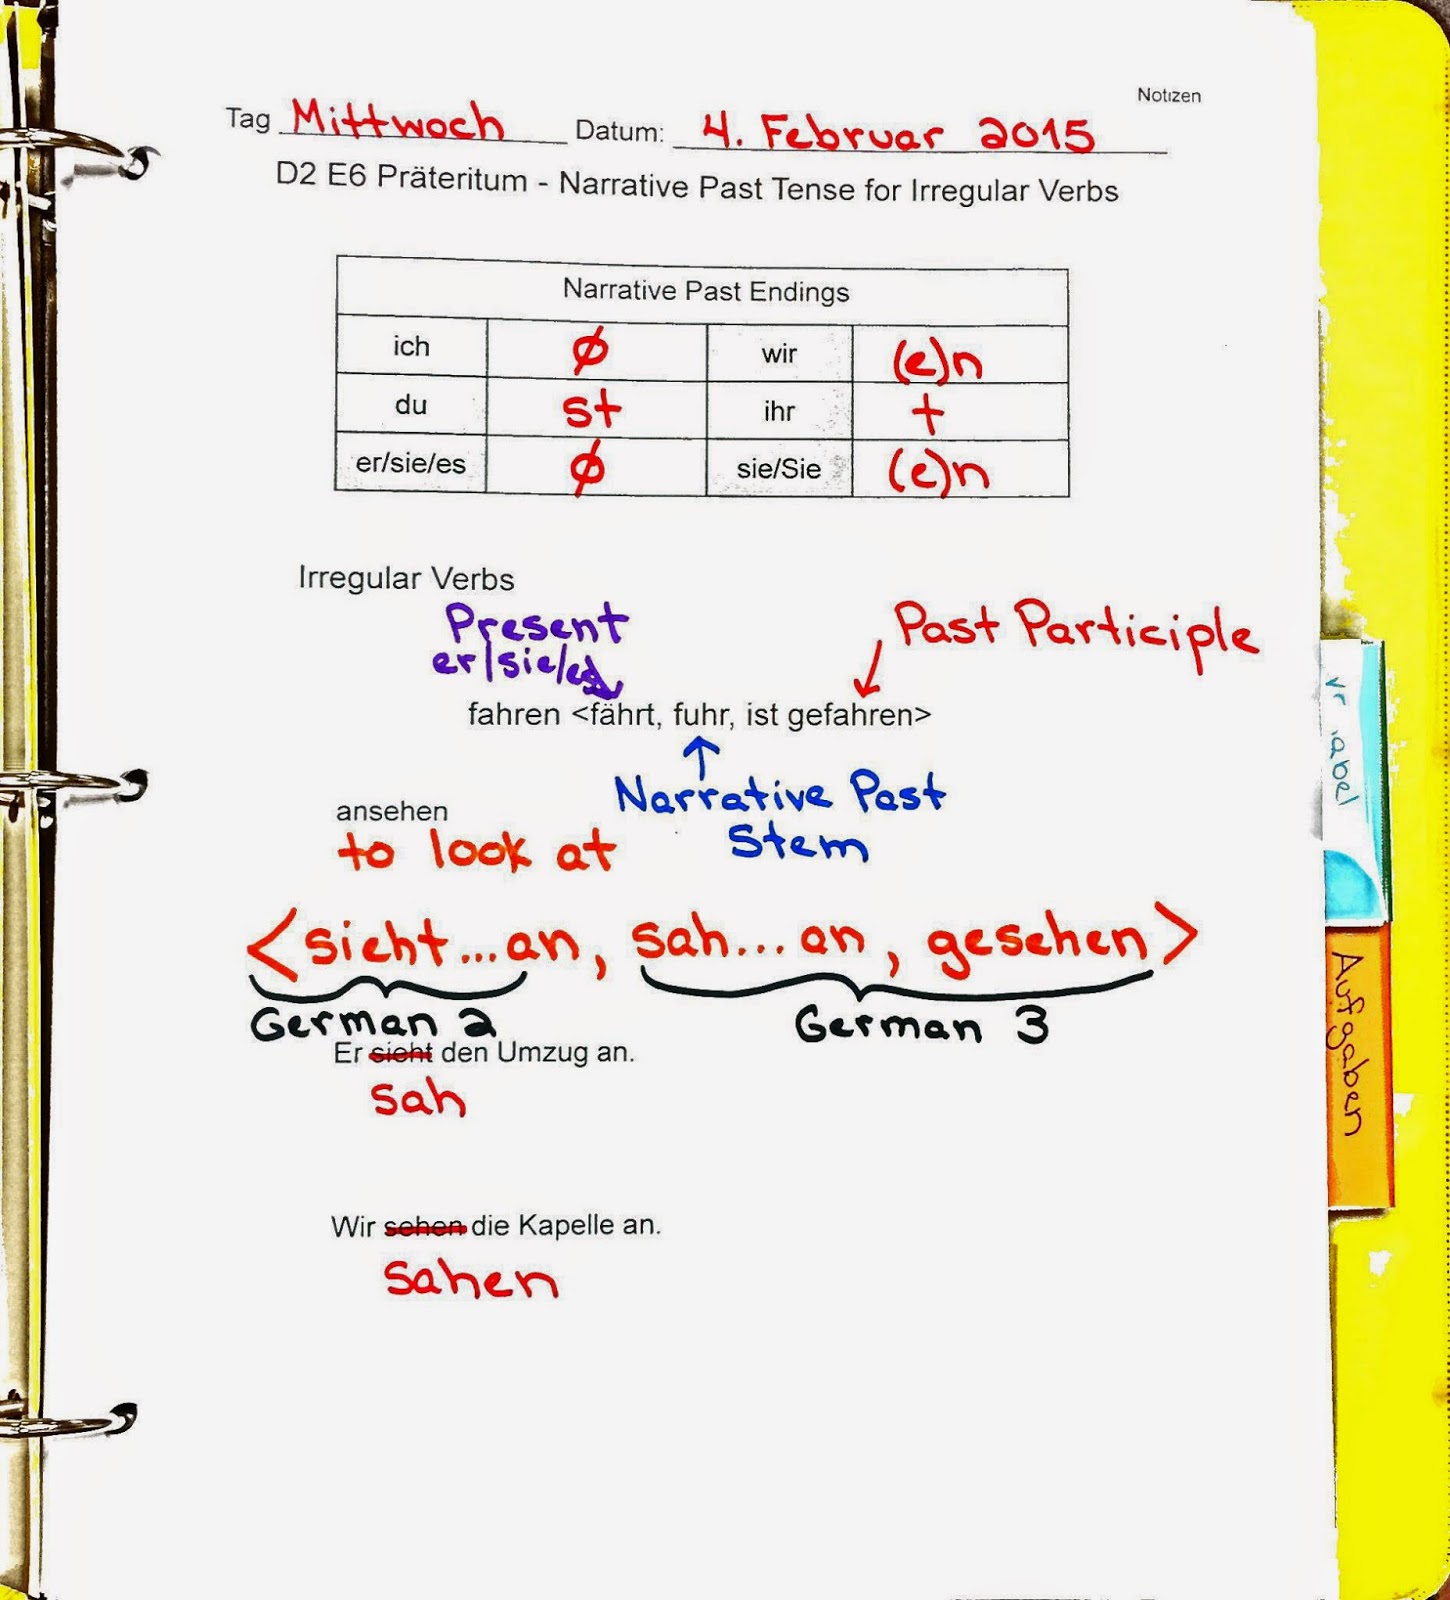 Notizen
Tag Mittwoch Datum: 4. Februar 2015
D2 E6 Präteritum - Narrative Past Tense for Irregular Verbs
Narrative Past Endings
ich ø wir (e)n
du st ihr t
er/sie/es ø sie/Sie (e)n
Irregular Verbs
Present
er/sie/es
Past Participle
fahren <fährt, fuhr, ist gefahren>
Narrative Past
Stem
ansehen
to look at
<sieht...an, sah...an, gesehen>
German 2 German 3
Er sieht den Umzug an.
sah
Wir sehen die Kapelle an.
sahen
Aufgaben